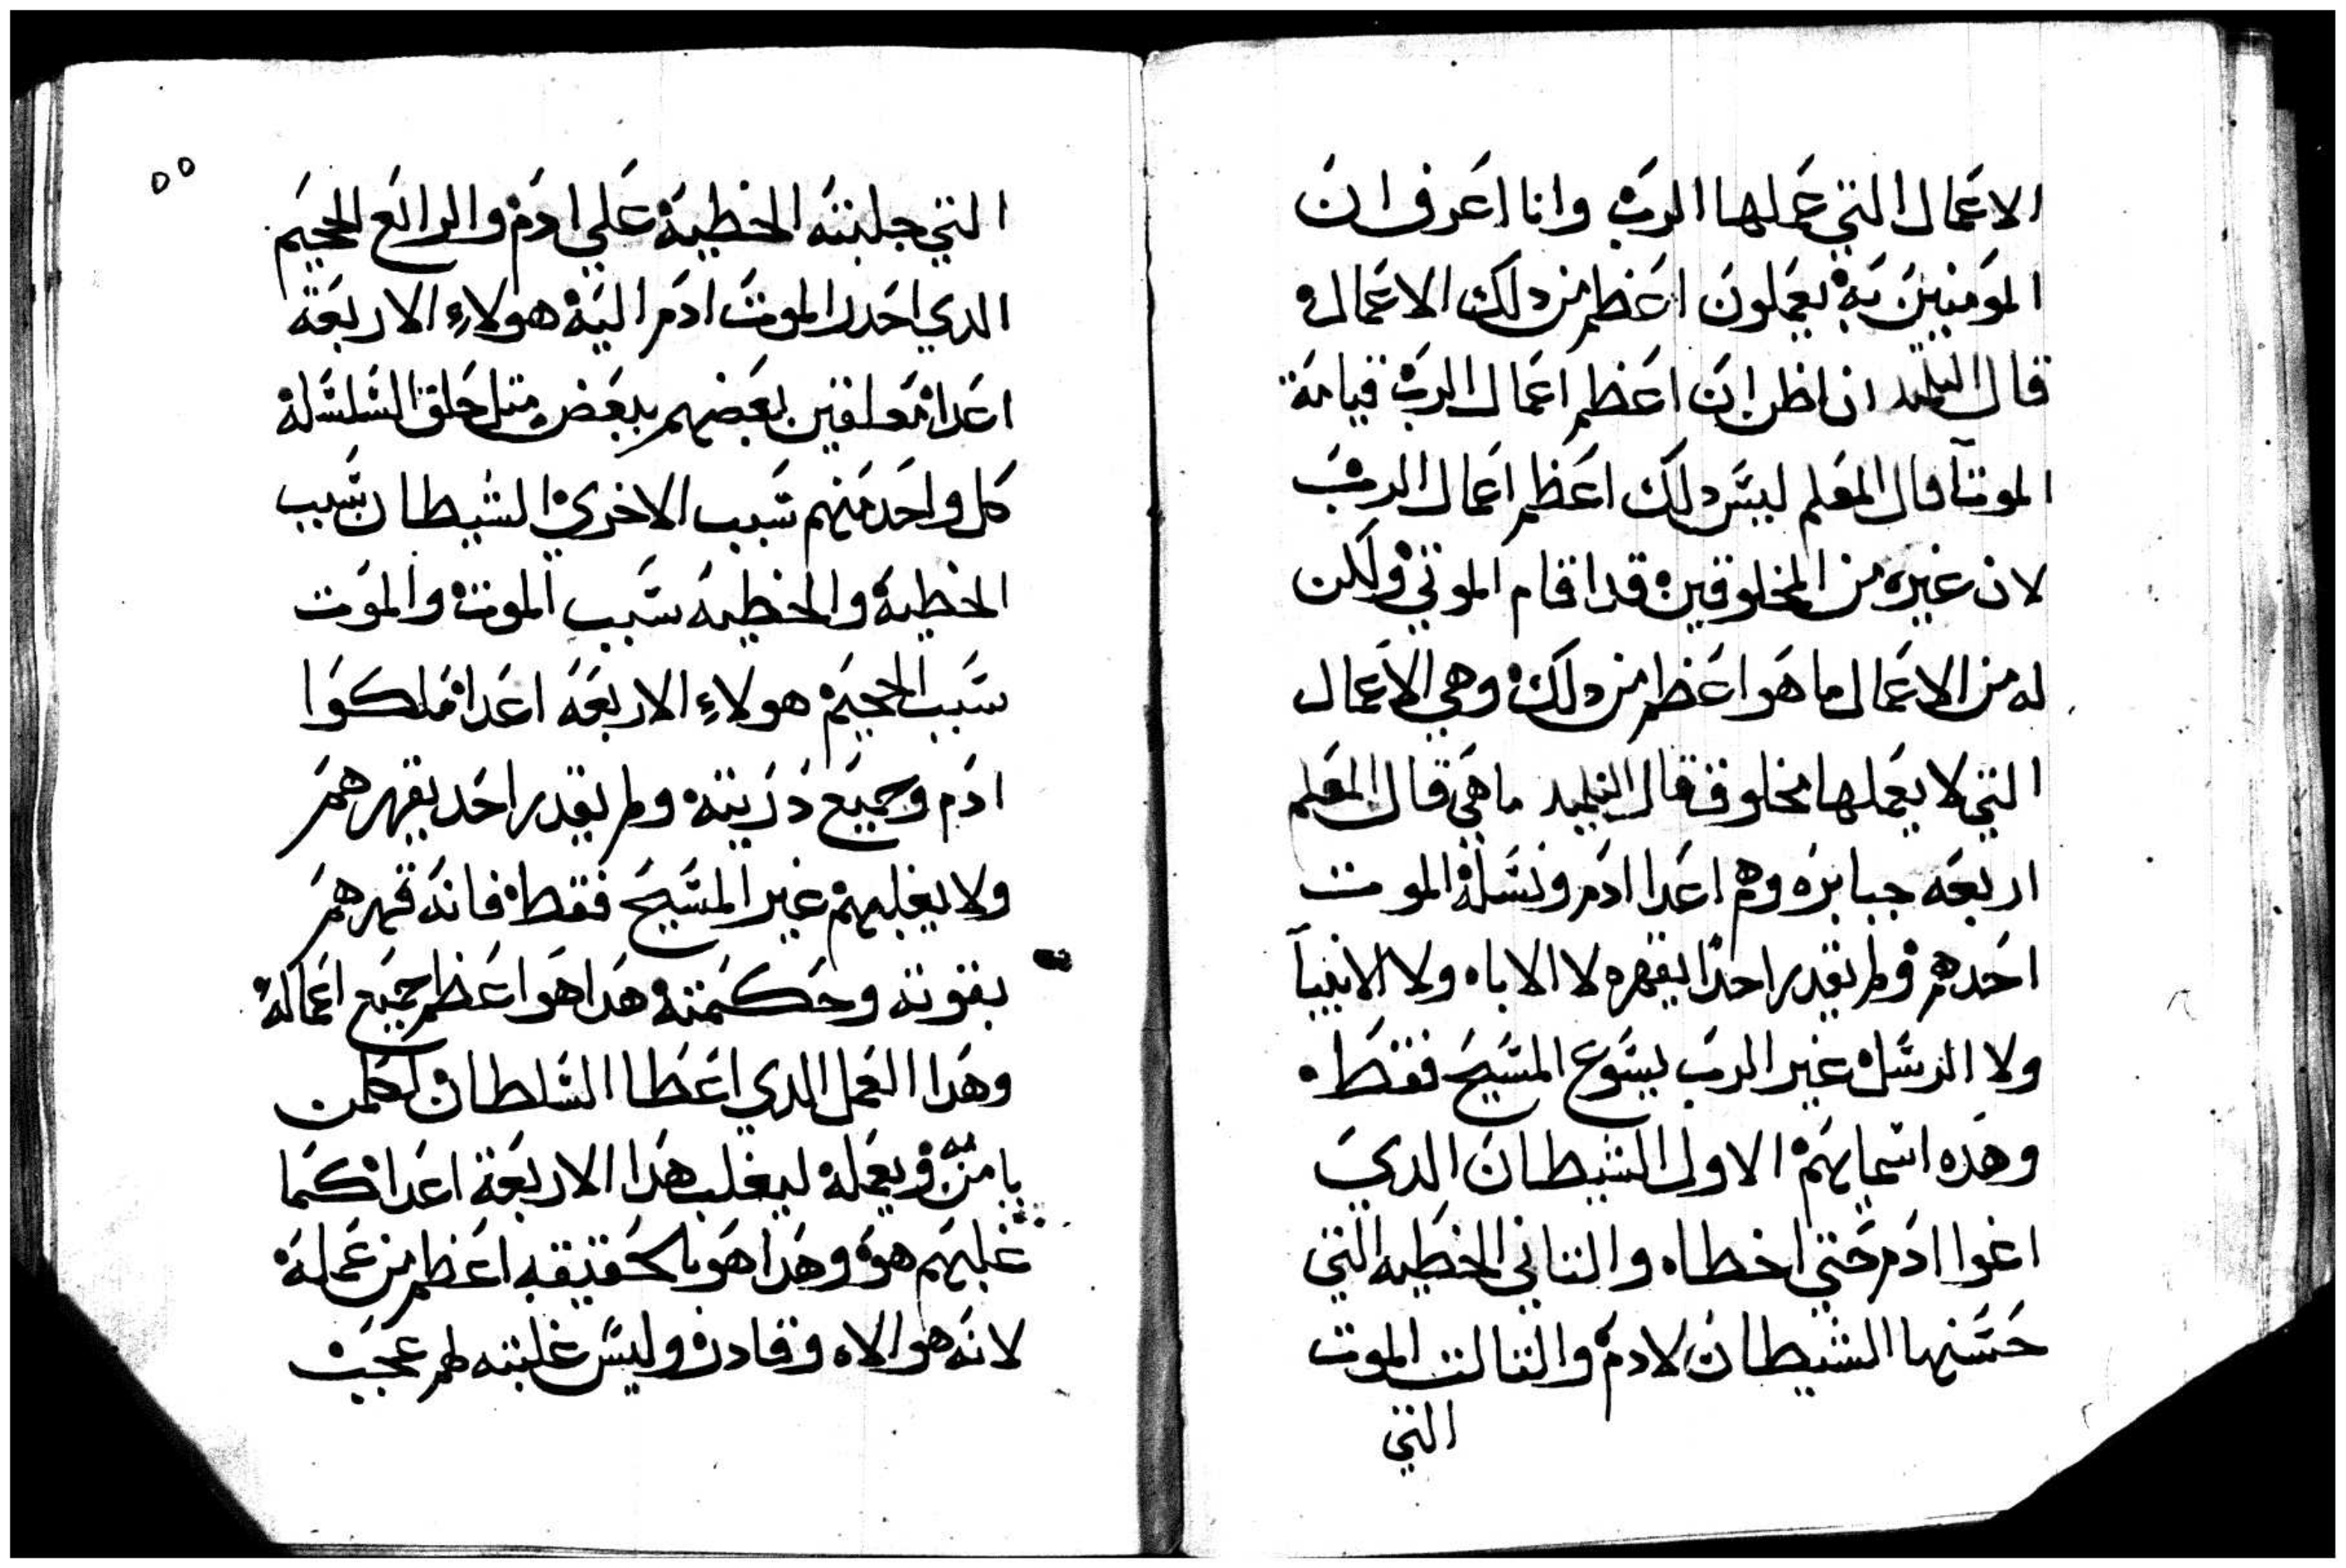 الاعمال التي عملها الرب وانا اعرف ان
المومنين به يعملون اعظم من دلك الاعمال
قال التلميد انا اظن ان اعظم اعمال الرب قيامة
الموتآ قال المعلم ليس دلك اعظم اعمال الرب
لان غيره من المخلوقين قد اقام الموتي ولكن
له من الاعمال ما هو اعظم من دلك وهي الاعمال
التي لا يعملها مخلوق فقال التلميد ما هي قال المعلم
اربعه جبابره وهم اعدا ادم ونسله الموت
احدهم ولم يقدر احدا يقهره لا الاباه ولا الانبيآ
ولا الرسل غير الرب يسوع المسيح فقط
وهده اسمايهم الاول الشيطان الدي
اغوا ادم حتي اخطاه والتاني الخطيه التي
حسنها الشيطان لادم والتالت الموت
التي
٥٥
التي جلبته الخطية علي ادم والرابع الجحيم
الدي احدر الموت ادم اليه هولاء الاربعة
اعدا معلقين بعضهم ببعض متل حلق السلسلة
كل واحد منهم سبب الاخري الشيطان سبب
الخطية والخطيه سبب الموت والموت
سبب الجحيم هولاء الاربعه اعدا ملكوا
ادم وجميع ذريته ولم يقدر احد يقهرهم
ولا يغلبهم غير المسيح فقط فانه قهرهم
بقوته وحكمته هدا هوا اعظم جميع اعماله
وهدا العمل الدي اعطا السلطان لكلمن
يامن به ويعمله ليغلب هدا الاربعة اعدا كما
غلبهم هو وهدا هو بالحقيقه اعظم من عمله
لانه هو الاه وقادر وليس غلبته لهم عجب